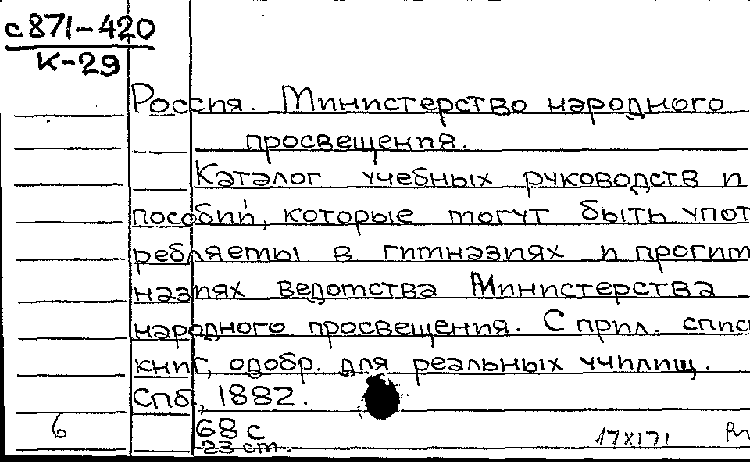 с871-420
К-29
Россия. Министерство народного
просвещения.
Каталог учебных руководств и
пособий, которые могут быть упот
ребляемы в гимназиях и прогим
назиях ведомства Министерства
народного просвещения. С прил. спис
книг, одобр. для реальных училищ.
Спб, 1882.
6 68 с
23 cm. 17X171